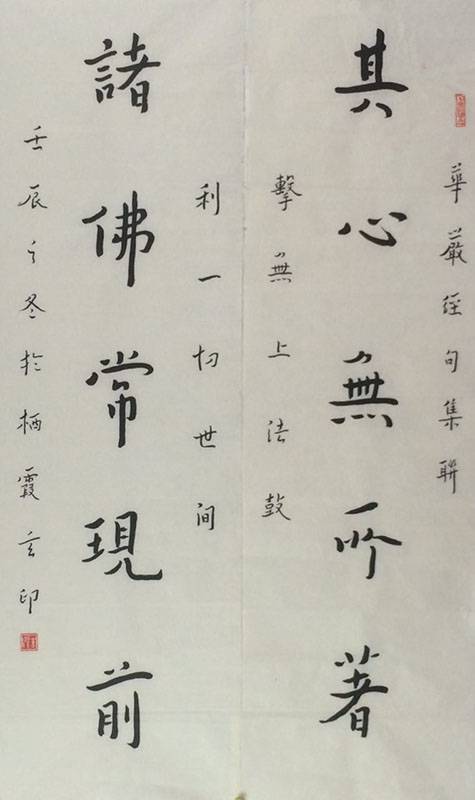 華嚴經句集聯
其心無所著
擊無上法鼓
利一切世间
諸佛常現前
壬辰之冬於栖霞玄印